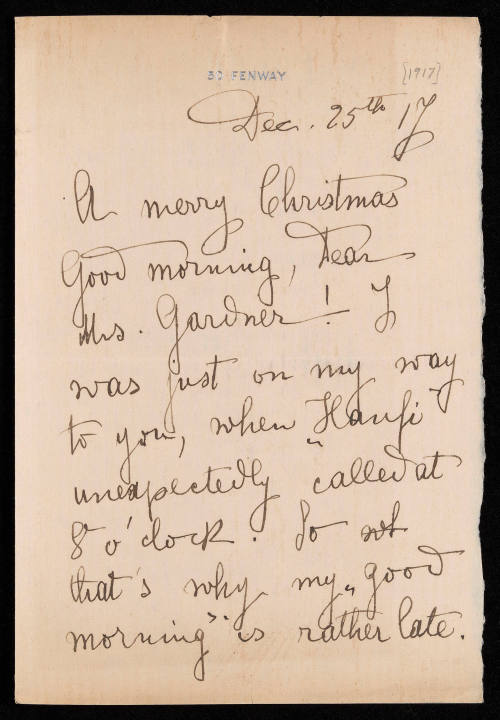 30 FENWAY
[1917]
Dec. 25th 17
A merry Christmas
Good morning, Dear
Mrs. Gardner! I
was just on my way
to you, when "Hansi"
unexpectedly called at
8 o'clock. So
that's why my „good
morning" is rather late.